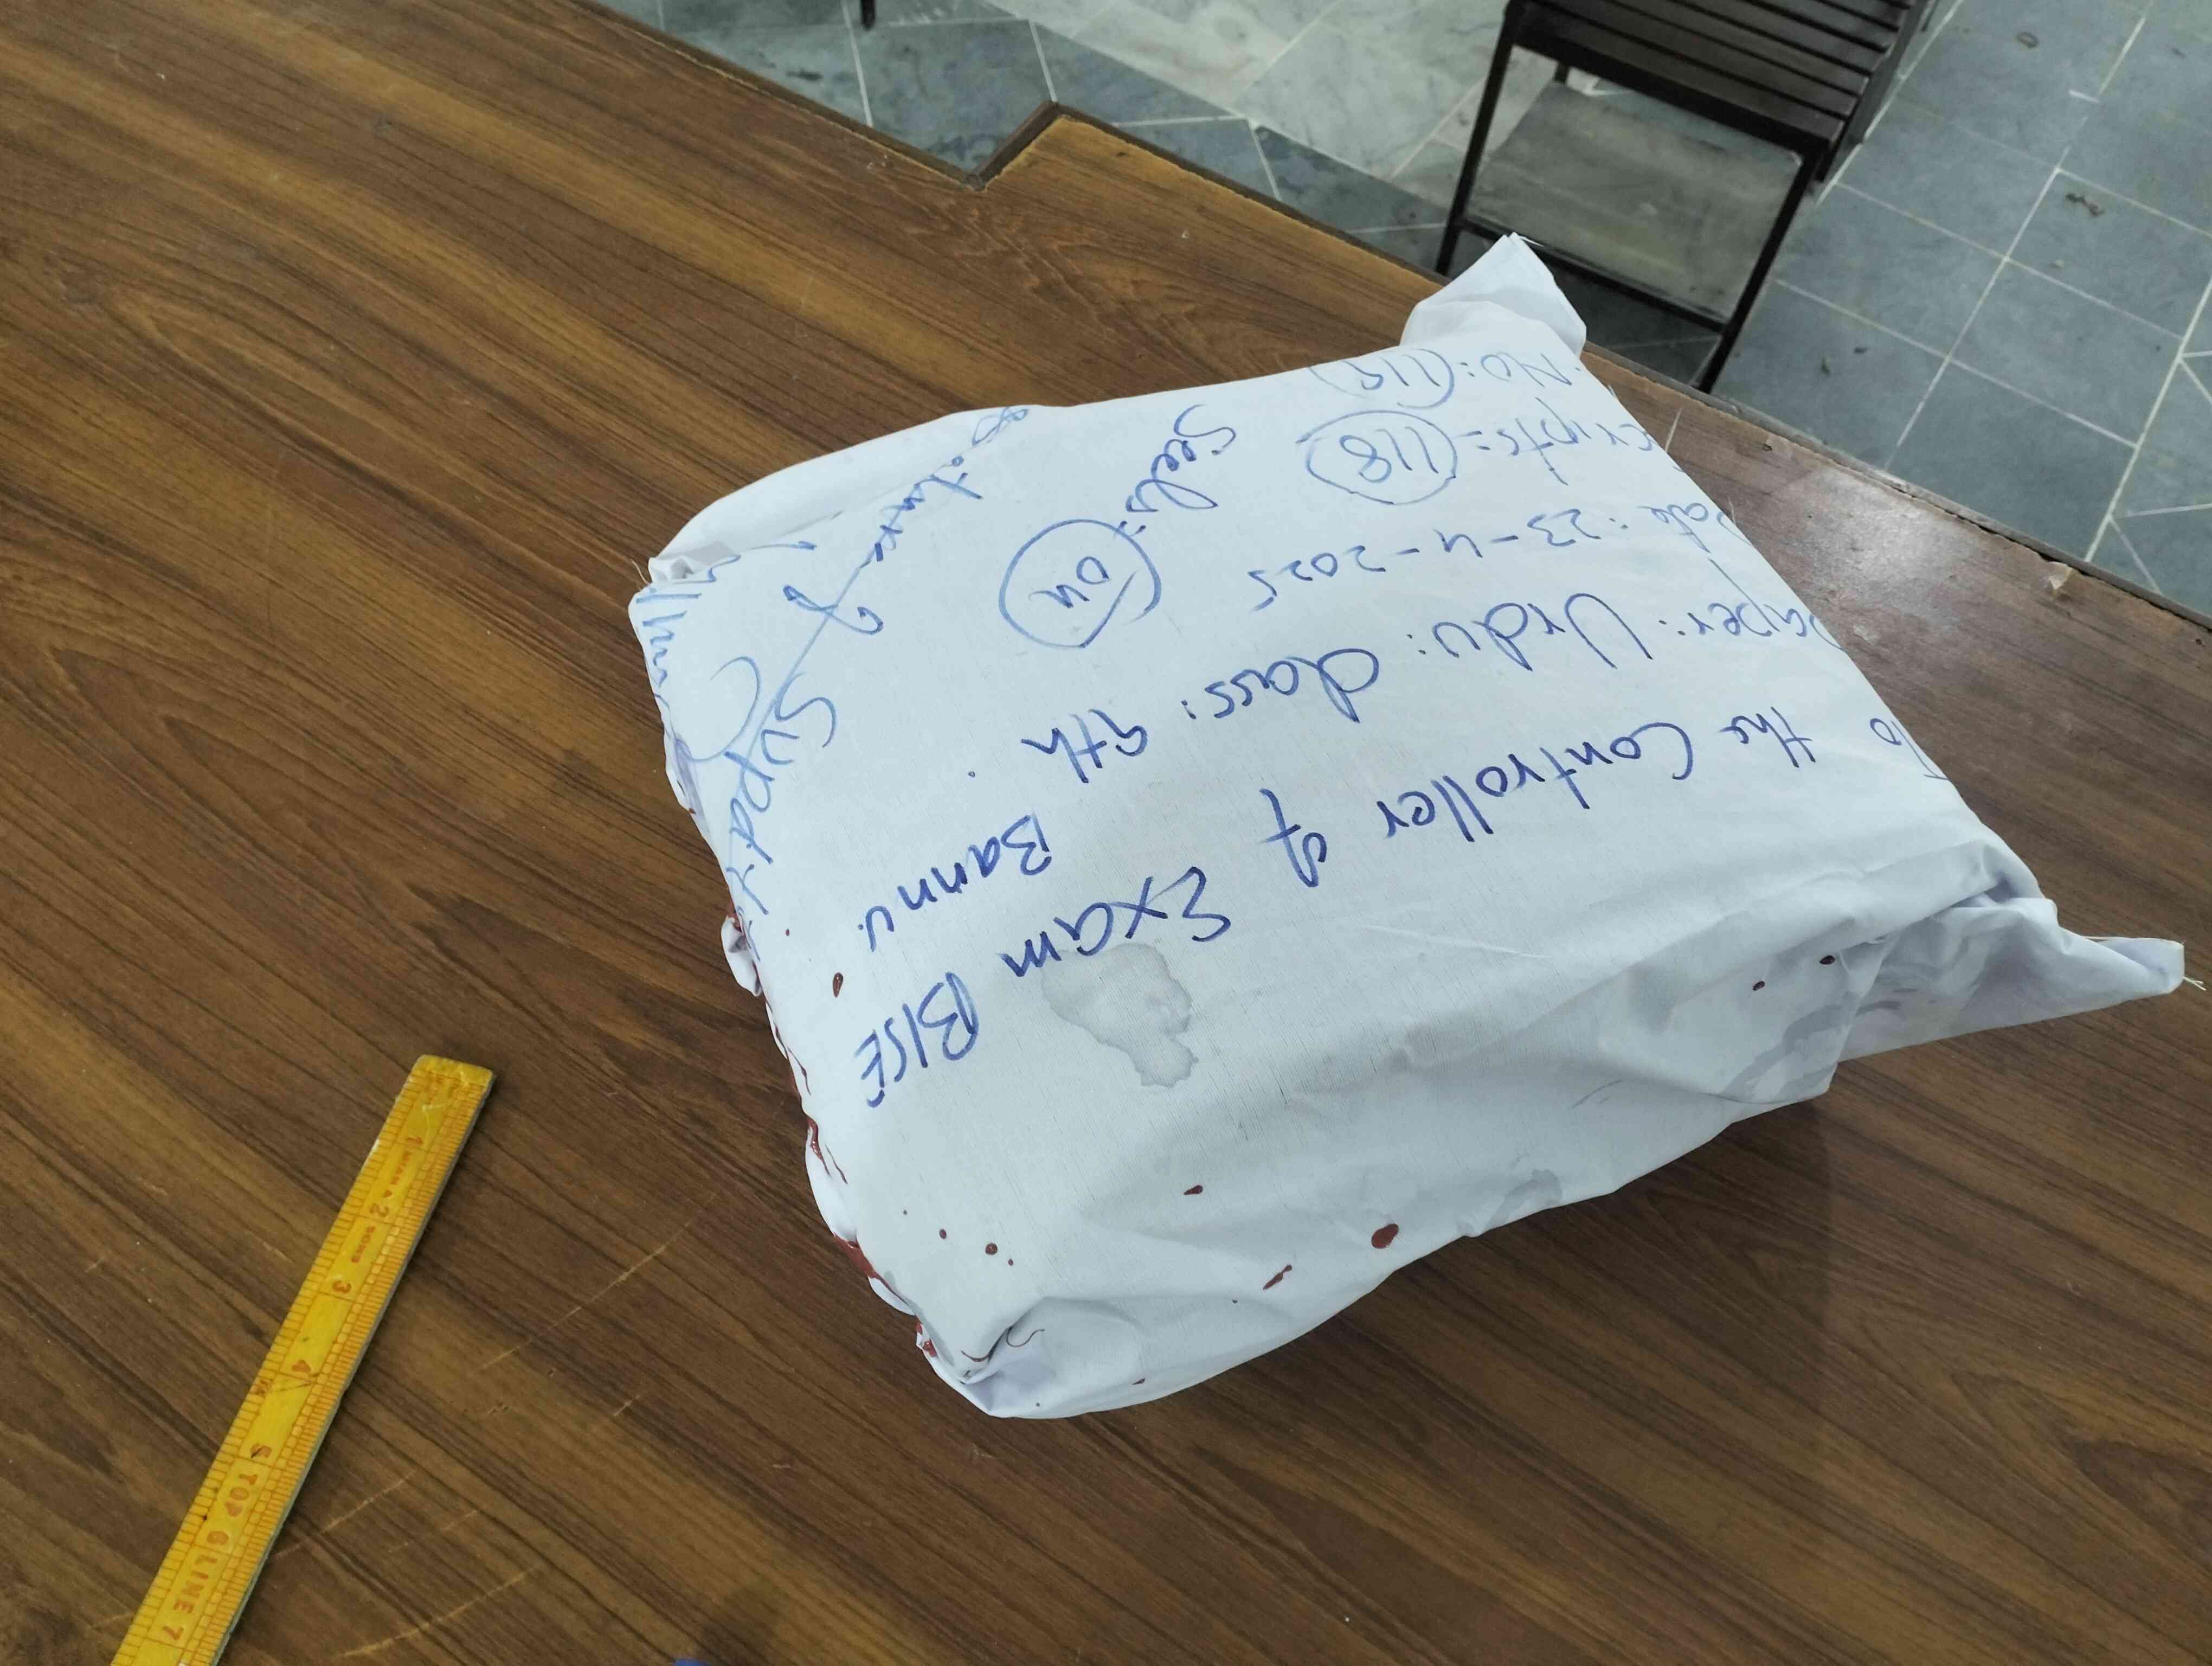 To the Controller of Exam BISE
Bannu.
Paper: Urdu: Class: 9th.
Date: 23-4-2025
cripts= 118 Seels= 04
No:
of Supdt:
1 2 3 4 5 TOP GLINE 7